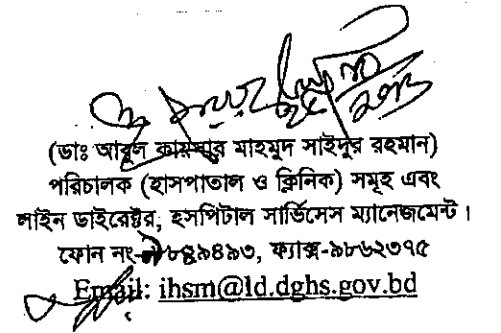 (ডাঃ আবুল কায়সার মাহমুদ সাইদুর রহমান)
পরিচালক (হাসপাতাল ও ক্লিনিক) সমূহ এবং
লাইন ডাইরেক্টর, হসপিটাল সার্ভিসেস ম্যানেজমেন্ট।
ফোন নং-৯৮৪৯৪৯৩, ফ্যাক্স-৯৮৬২৩৭৫
Email: ihsm@ld.dghs.gov.bd